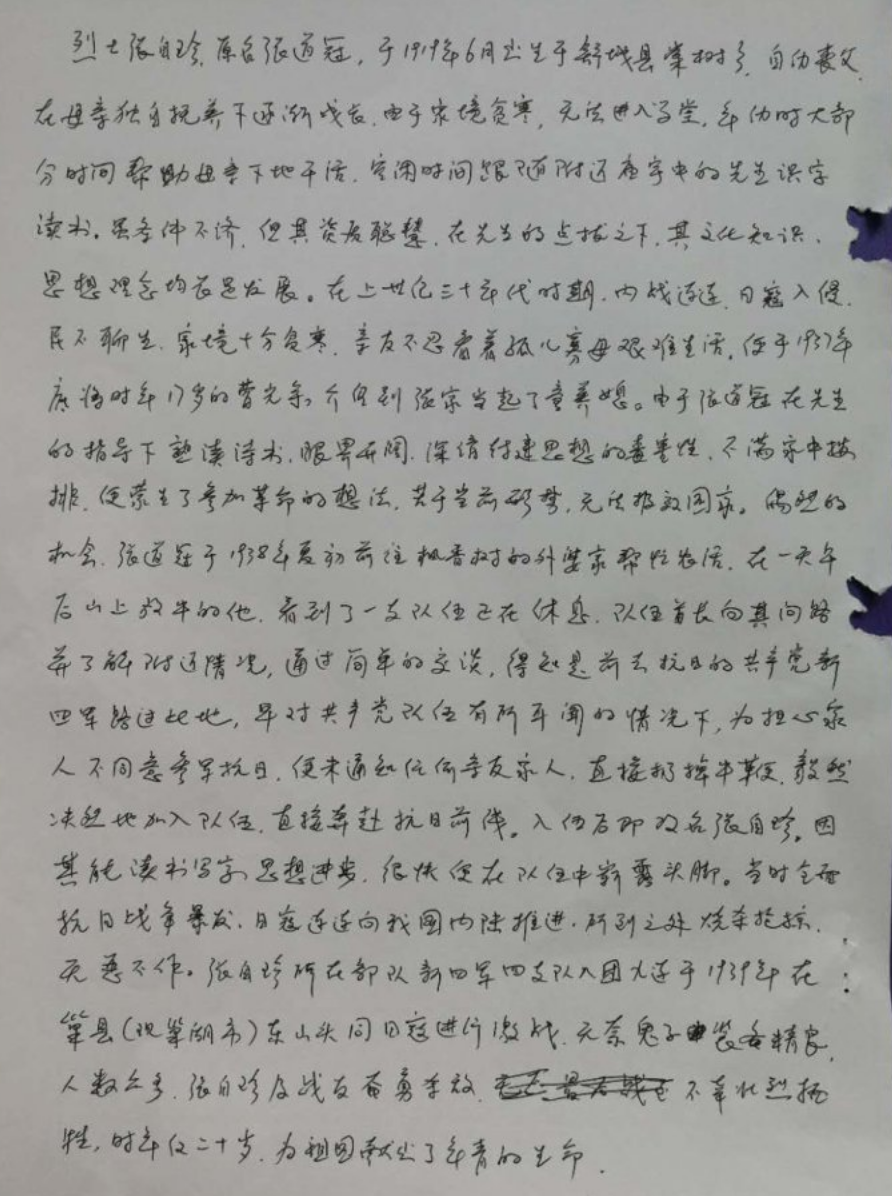 烈士张自珍,原名张道冠,于1919年6月出生于舒城县棠树乡,自幼丧父,
在母亲独自抚养下逐渐成长,由于家境贫寒,无法进入学堂,年幼时大部
分时间帮助母亲下地干活,空闲时间跟随附近庙宇中的先生识字
读书。虽条件不济,但其资质聪慧,在先生的点拔之下,其文化知识、
思想理念均长足发展。在上世纪三十年代时期,内战连连,日寇入侵,
民不聊生,家境十分贫寒,亲友不忍看着孤儿寡母艰难生活,便于1937年
底将时年17岁的曹光 介绍到张家当起了童养媳。由于张道冠在先生
的指导下熟读诗书,眼界开阔,深悟封建思想的毒害性,不满家中按
排,便萌生了参加革命的想法,苦于当前形势,无法报效国家。偶然的
机会,张道冠于1938年夏初前往枫香树的外婆家帮忙农活,在一天午
后山上放牛的他,看到了一支队伍正在休息,队伍首长向其问路
并了解附近情况,通过简单的交谈,得知是前去抗日的共产党新
四军路过此地,早对共产党队伍有所耳闻的情况下,为担心家
人不同意参军抗日,便未通知任何亲友家人,直接扔掉牛鞭,毅然
决然地加入队伍,直接奔赴抗日前线。入伍后即改名张自珍。因
其能读书写字,思想进步,很快便在队伍中崭露头脚。当时全面
抗日战争暴发,日寇连连向我国内陆推进,所到之处烧杀抢掠,
无恶不作。张自珍所在部队新四军四支队八团 连于1939年在
巢县(现巢湖市)东山头同日寇进行激战,无奈鬼子装备精良,
人数众多,张自珍及战友奋勇杀敌,不幸壮烈牺
牲,时年仅二十岁,为祖国献出了年青的生命.